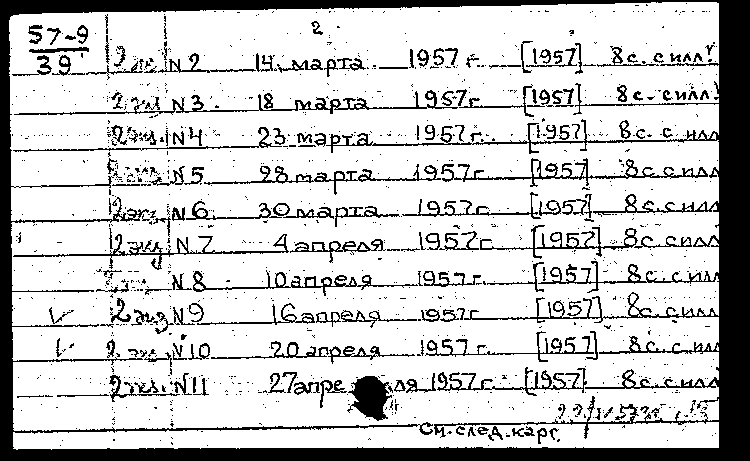 2
57-9
39
2 экз N 2 14 марта 1957 г. [1957] 8 с. с илл.
2 экз N 3. 18 марта 1957 г [1957] 8 с. с илл.
2 экз. N 4 23 марта 1957 г. [1957] 8 с. с илл
2 экз N 5 28 марта 1957 г. [1957] 8 с. с илл
2 экз N 6 30 марта 1957 г. [1957] 8 с. с илл
2 экз N 7 4 апреля 1957 г. [1957] 8 с. с илл
2 экз N 8 10 апреля 1957 г. [1957] 8 с. с илл
2 экз N 9 16 апреля 1957 г [1957] 8 с. с илл
2 экз N 10 20 апреля 1957 г. [1957] 8 с. с илл
2 экз. N 11 27 апреля 1957 г. [1957] 8 с. с илл
См. след. карт.